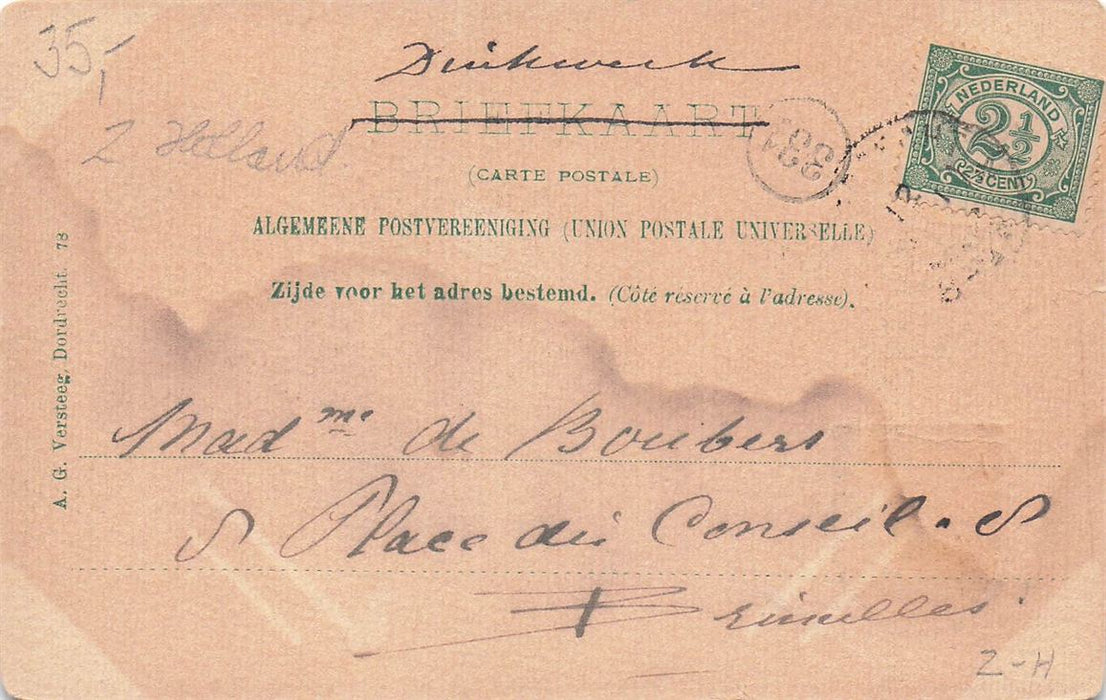 35,-
Drukwerk
BRIEFKAART
Z Holland
(CARTE POSTALE)
ALGEMEENE POSTVEREENIGING (UNION POSTALE UNIVERSELLE)
Zijde voor het adres bestemd. (Côté réservé à l'adresse).
NEDERLAND
2½
(2½ CENT)
A. G. Versteeg, Dordrecht. 78
Mad me de Boubers
8 Place du Conseil. 8
Bruxelles
Z-H